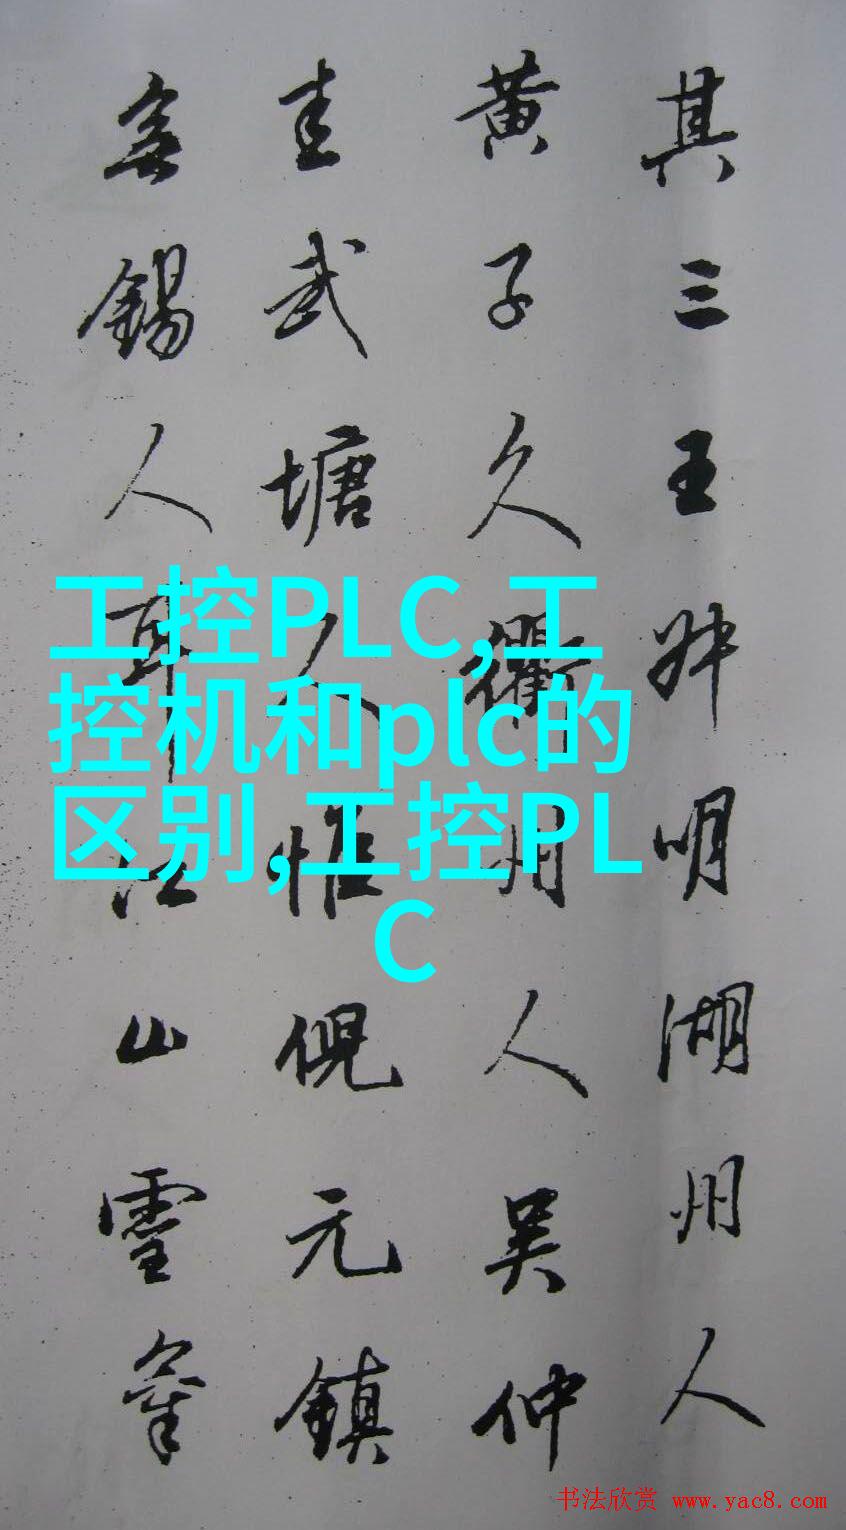 其三王叔明湖州人
黄子久衢州人吴仲
圭武塘人惟倪元镇
无锡人耳江山灵气
工控PLC,工
控机和plc的
区别,工控PL
C
书法欣赏 www.yac8.com